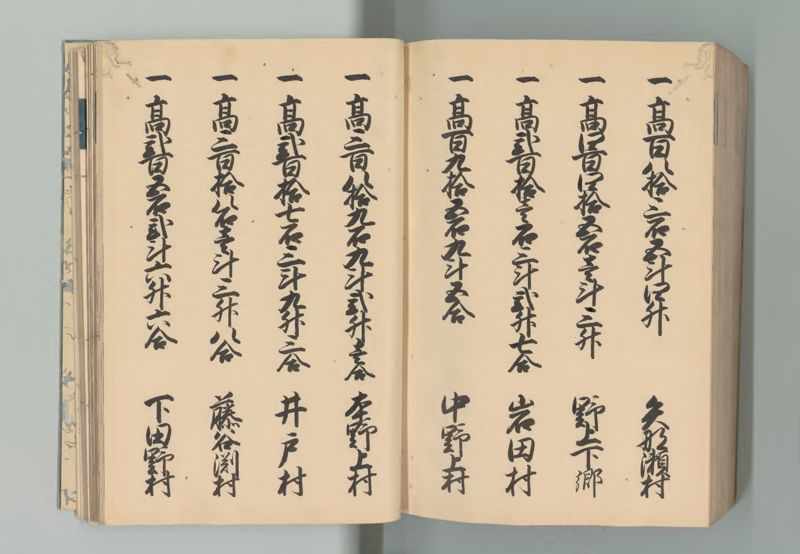 一 髙百八拾三石五斗四升 矢那瀬村
一 髙四百四拾五石壱斗三升 野上下郷
一 髙弐百拾壱石三斗弐升七合 岩田村
一 髙百九拾五石九斗五合 中野上村
一 髙三百八拾九石九斗弐升壱合 本野上村
一 髙弐百拾七石三斗九升三合 井戸村
一 髙三百拾八石壱斗三升八合 藤谷渕村
一 髙弐百五石弐斗六升六合 下田野村